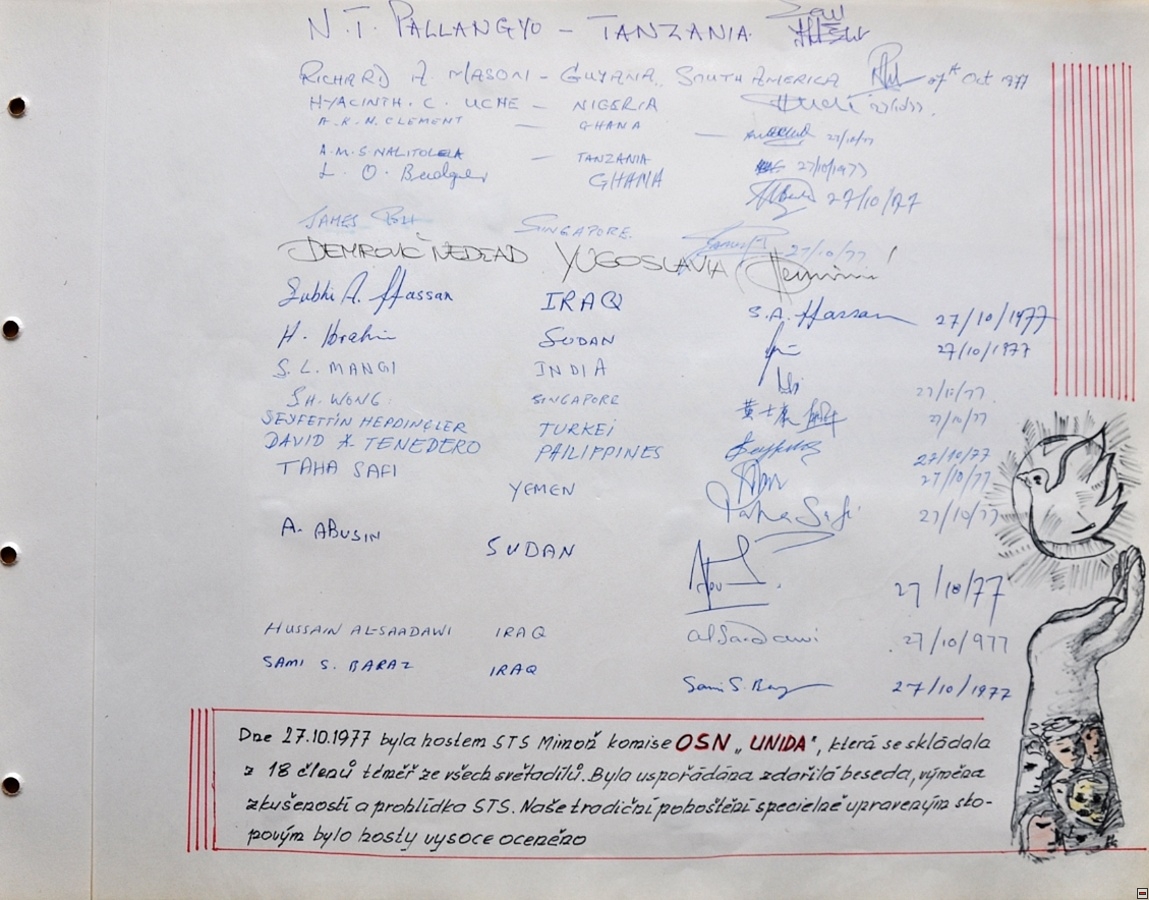 N.T. PALLANGYO - TANZANIA
RICHARD A. MASON - GUYANA, SOUTH AMERICA 27th Oct 1977
HYACINTH. C. UCHE - NIGERIA 27/10/77.
A.K.N. CLEMENT - GHANA - 27/10/77
A.M.S. NALITOLELA - TANZANIA 27/10/1977
L. O. Badger GHANA 27/10/77
JAMES POH SINGAPORE. 27/10/77
DEMROVIĆ NEDŽAD YUGOSLAVIA
Subhi A. Hassan IRAQ S.A. Hassan 27/10/1977
H. Ibrahim SUDAN 27/10/1977
S. L. MANGI INDIA 27/10/77
S.H. WONG. SINGAPORE 27/10/77
SEYFETTİN HEPDİNÇLER TURKEI 27/10/77
DAVID A. TENEDERO PHILIPPINES 27/10/77
TAHA SAFI YEMEN Taha Safi 27/10/77
A. ABUSIN SUDAN 27/10/77
HUSSAIN AL-SAADAWI IRAQ alSaadawi 27/10/977
SAMI S. BARAZ IRAQ Sami S. 27/10/1977
Dne 27.10.1977 byla hostem STS Mimoň komise OSN „UNIDA“, která se skládala
z 18 členů téměř ze všech světadílů. Byla uspořádána zdařilá beseda, výměna
zkušeností a prohlídka STS. Naše tradiční pohoštění specielně upraveným sto-
povým bylo hosty vysoce oceněno